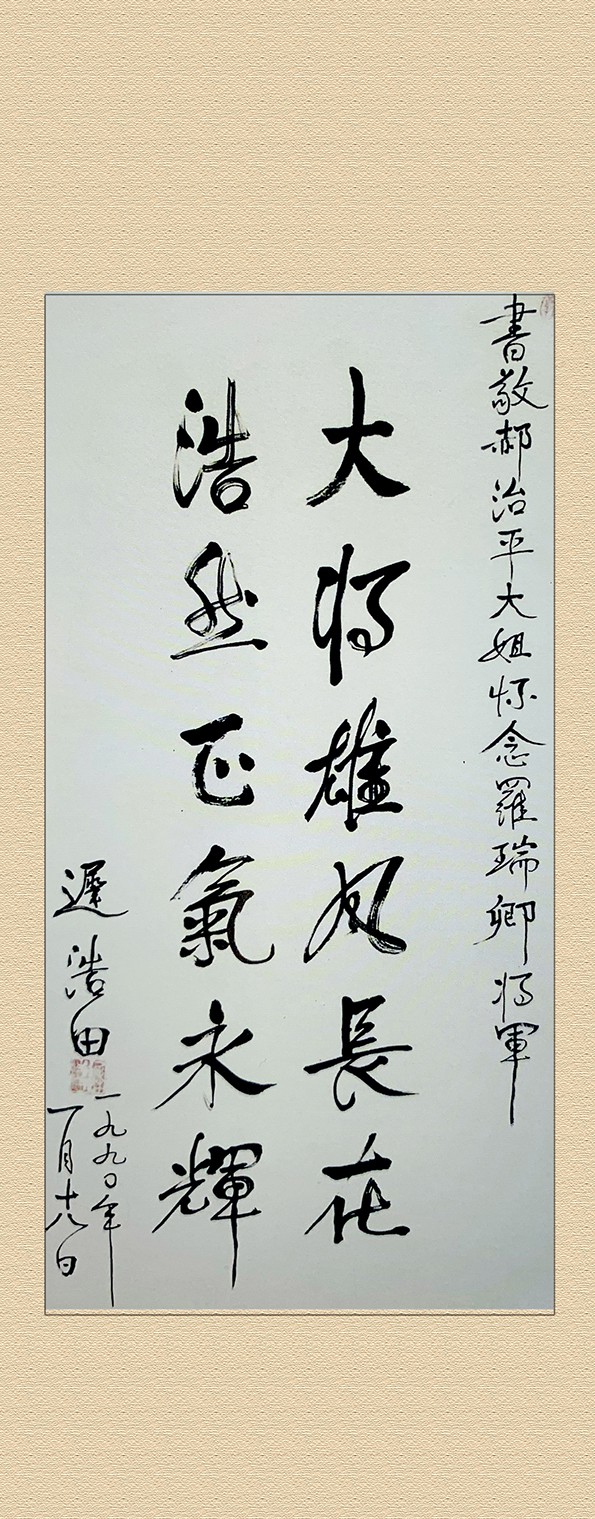 書敬郝治平大姐怀念羅瑞卿将軍
大将雄风長在
浩然正氣永輝
遲浩田
一九九〇年
一月十八日